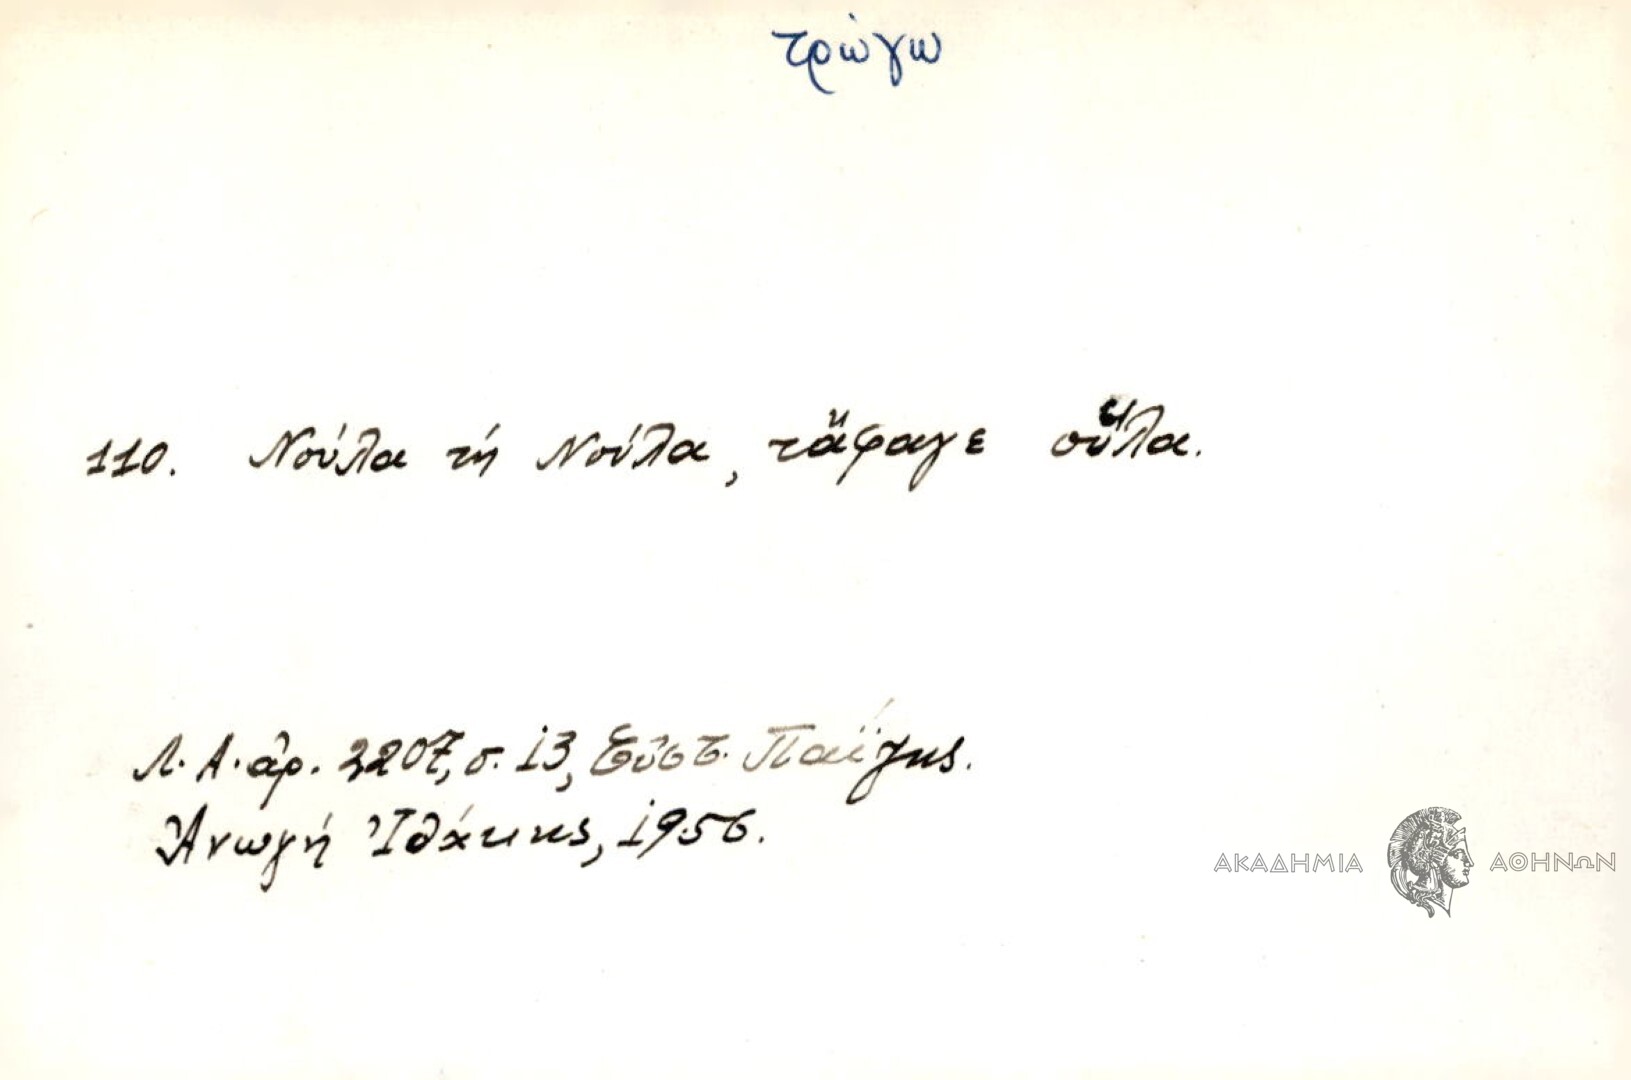 τρώγω
110. Νούλα τή Νούλα, τἄφαγε οὔλα.
Λ.Α. ἀρ. 2207, σ. 13, Εὐστ. Παΐζης.
Ἀνωγή Ἰθάκης, 1956.
ΑΚΑΔΗΜΙΑ ΑΘΗΝΩΝ